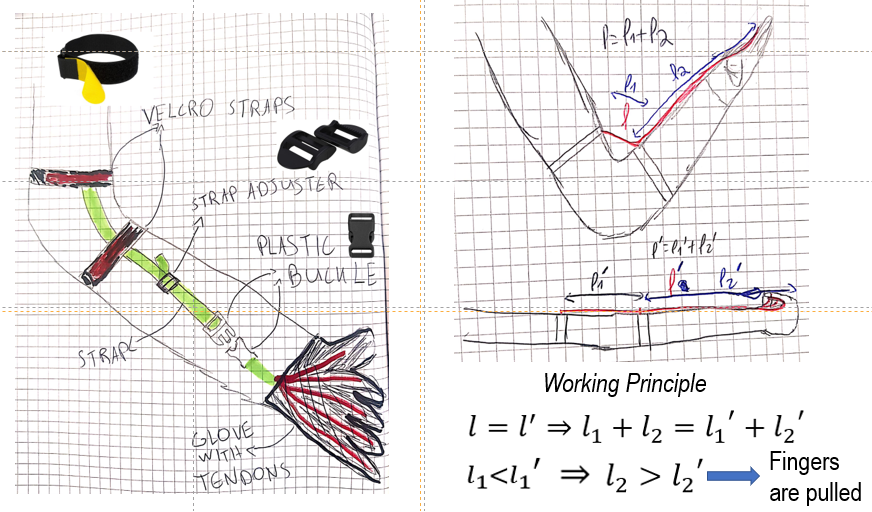 VELCRO STRAPS
STRAP ADJUSTER
PLASTIC
BUCKLE
STRAP
GLOVE
WITH
TENDONS
l=l₁+l₂
l₁
l₂
l
l'=l₁'+l₂'
l₁'
l'
l₂'
Working Principle
l = l′ ⇒ l₁ + l₂ = l₁′ + l₂′
l₁<l₁′ ⇒ l₂ > l₂′
Fingers
are pulled